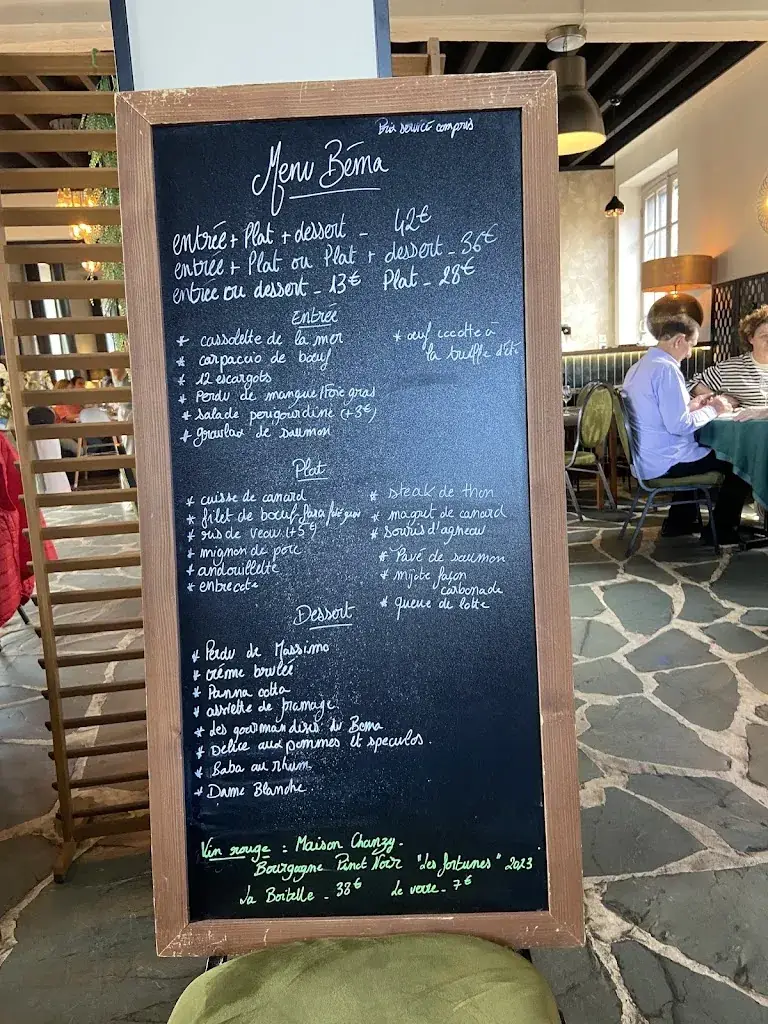 Prix service compris
Menu Béma
entrée + Plat + dessert - 42€
entrée + Plat ou Plat + dessert - 36€
entrée ou dessert - 13€ Plat - 28€
Entrée
* cassolette de la mer
* carpaccio de bœuf
* 12 escargots
* Perdu de mangue/Foie gras
* salade perigourdine (+3€)
* gravlax de saumon
* œuf cocotte à
la truffe d'été
Plat
* cuisse de canard
* filet de bœuf
* ris de veau (+5€)
* mignon de porc
* andouillette
* entrecote
* steak de thon
* magret de canard
* souris d'agneau
* Pavé de saumon
* mijoté façon
carbonade
* queue de lotte
Dessert
* Perdu de Massimo
* crème brulée
* Panna cotta
* assiette de fromage
* les gourmandises du Bema
* Délice aux pommes et speculos.
* Baba au rhum
* Dame Blanche
Vin rouge : Maison Chanzy-
Bourgogne Pinot Noir "Les fortunes" 2023
La Boiteille - 38€ Le verre - 7€